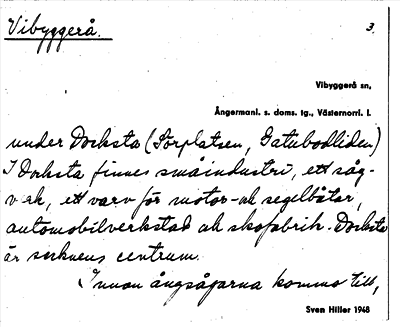 Vibyggerå.
3.
Vibyggerå sn,
Ångermanl. s. doms. tg., Västernorrl. l.
under Docksta (Torplatsen, Gatubodliden)
I Docksta finnes småindustri, ett såg-
verk, ett varv för motor- och segelbåtar,
automobilverkstad och skofabrik. Docksta
är socknens centrum.
Innan ångsågarna kommo till,
Sven Hiller 1948